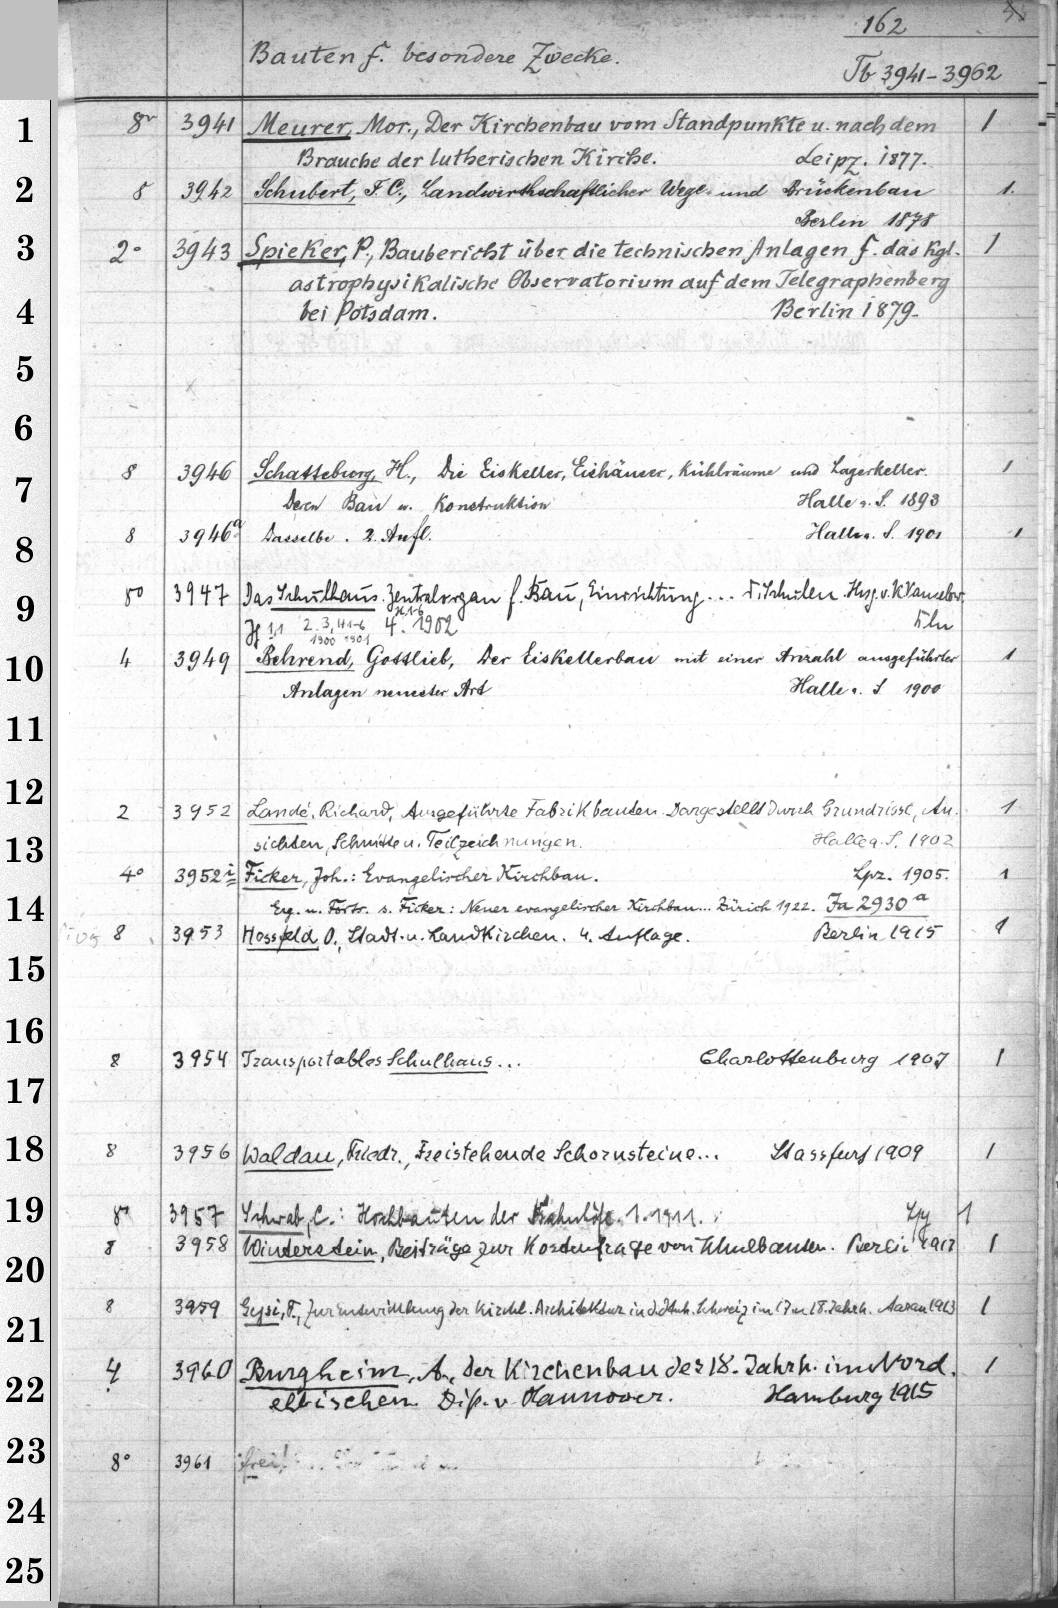 162
Bauten f. besondere Zwecke.
Tb 3941-3962
1 8° 3941 Meurer, Mor., Der Kirchenbau vom Standpunkte u. nach dem 1
Brauche der lutherischen Kirche. Leipz. 1877.
2 8 3942 Schubert, F. C., Landwirthschaftlicher Wege- und Brückenbau 1.
Berlin 1878
3 2° 3943 Spieker, P., Baubericht über die technischen Anlagen f. das Kgl. 1
astrophysikalische Observatorium auf dem Telegraphenberg
4 bei Potsdam. Berlin 1879.
5
6
8 3946 Schatteburg, H., Die Eiskeller, Eishäuser, Kühlräume und Lagerkeller. 1
7 Deren Bau u. Konstruktion Halle a. S. 1893
8 8 3946a Dasselbe. 2. Aufl. Halle a. S. 1901 1
9 8° 3947 Das Schulhaus. Zentralorgan f. Bau, Einrichtung... v. Schulen. Hrsg. v. K Vanselow.
Jg 1,1 2. 3, H1-6 4. H1-6 1902
1900 1901
10 4 3949 Behrend, Gottlieb, Der Eiskellerbau mit einer Anzahl ausgeführter 1
Anlagen neuester Art Halle a. S 1900
11
12 2 3952 Landé, Richard, Ausgeführte Fabrikbauten. Dargestellt durch Grundrisse, An- 1
13 sichten, Schnitte u. Teilzeichnungen. Halle a. S. 1902
4° 3952i Ficker, Joh.: Evangelischer Kirchbau. Lpz. 1905. 1
14 Erg. u. Forts. s. Ficker: Neuer evangelischer Kirchbau... Zürich 1922. Ja 2930a
8 3953 Hossfeld, O., Stadt- u. Landkirchen. 4. Auflage. Berlin 1915 1
15
16
8 3954 Transportables Schulhaus... Charlottenburg 1907 1
17
18 8 3956 Waldau, Friedr., Freistehende Schornsteine... Stassfurt 1909 1
19 8° 3957 Schwab, C.: Hochbauten der Bahnhöfe. 1. 1911. Lpg 1
20 8 3958 Winterstein, Beiträge zur Kostenfrage von Schulbauten. Berlin 1912 1
21 8 3959 Gysi, F., Zur Entwicklung der kirchl. Architektur in d. dtsch. Schweiz im 17 u 18. Jahrh. Aarau 1913 1
22 4 3960 Burgheim, A., Der Kirchenbau des 18. Jahrh. im Nord- 1
elbischen. Dis. v. Hannover. Hamburg 1915
23 8° 3961 frei!
24
25